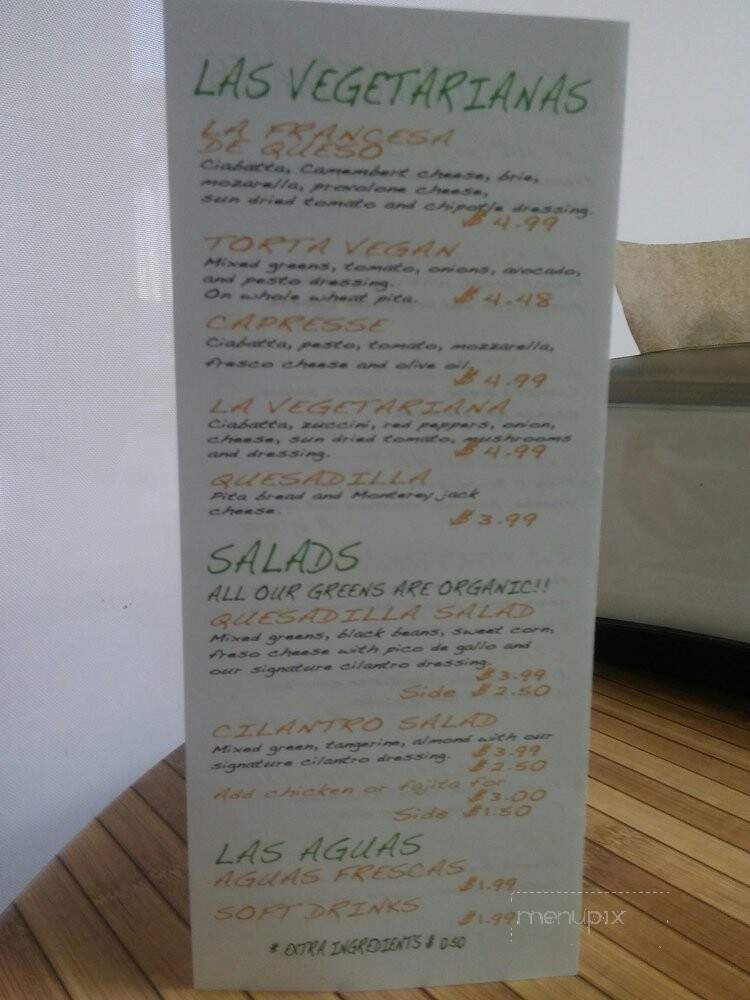 LAS VEGETARIANAS
LA FRANCESA
DE QUESO
Ciabatta, Camembert cheese, brie,
mozarella, provolone cheese,
sun dried tomato and chipotle dressing.
$ 4.99
TORTA VEGAN
Mixed greens, tomato, onions, avocado,
and pesto dressing.
On whole wheat pita. $ 4.48
CAPRESSE
Ciabatta, pesto, tomato, mozzarella,
fresco cheese and olive oil.
$ 4.99
LA VEGETARIANA
Ciabatta, zuccini, red peppers, onion,
cheese, sun dried tomato, mushrooms
and dressing. $ 4.99
QUESADILLA
Pita bread and Monterey jack
cheese.
$ 3.99
SALADS
ALL OUR GREENS ARE ORGANIC!!
QUESADILLA SALAD
Mixed greens, black beans, sweet corn,
freso cheese with pico de gallo and
our signature cilantro dressing.
$3.99
Side $2.50
CILANTRO SALAD
Mixed green, tangerine, almond with our
signature cilantro dressing. $3.99
$2.50
Add chicken or fajita for
$3.00
Side $1.50
LAS AGUAS
AGUAS FRESCAS $1.99
SOFT DRINKS $1.99
* EXTRA INGREDIENTS $ 0.50
menupix